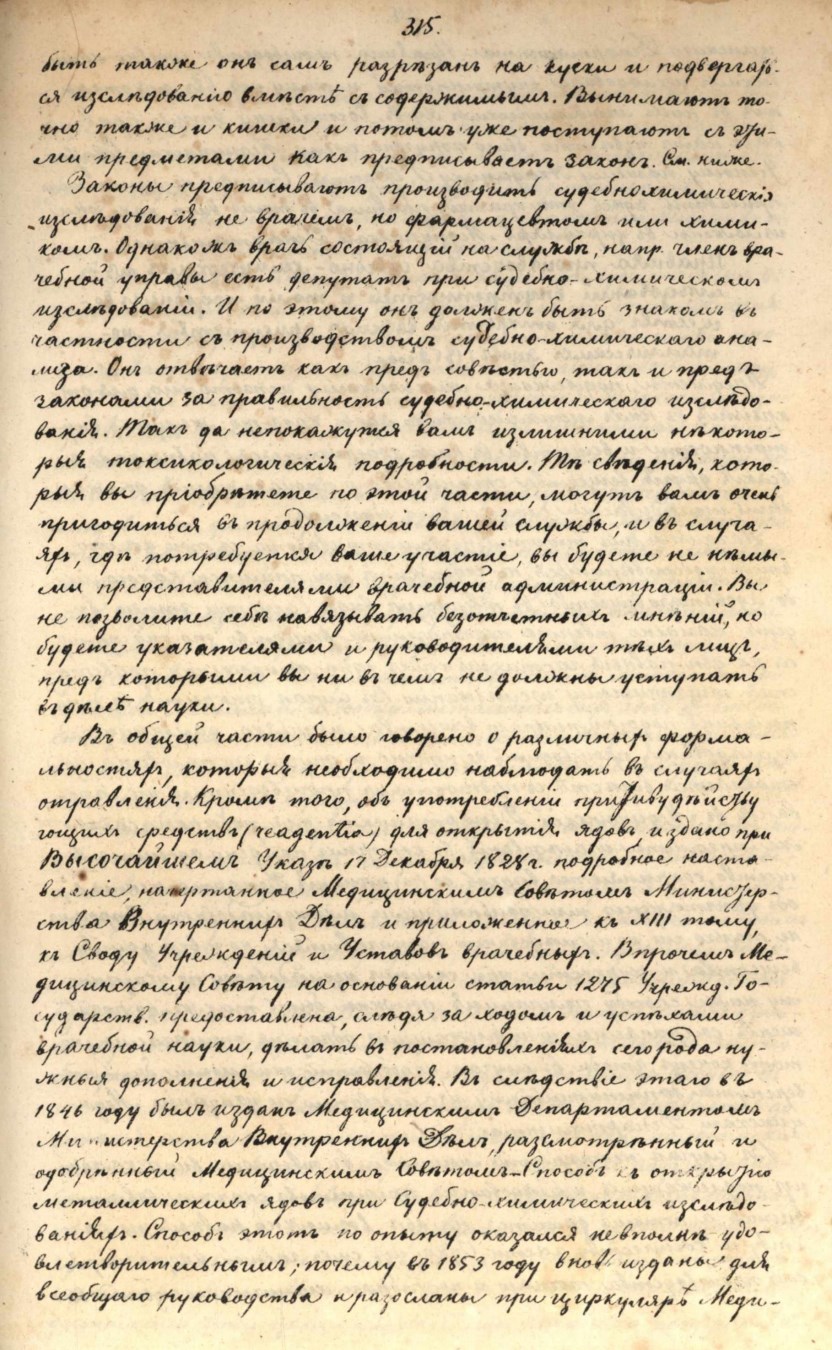 315.
быть также онъ самъ разрѣзанъ на куски и подвергат-
ся изслѣдованію вмѣстѣ съ содержимымъ. Вынимаютъ то-
чно также и кишки и потомъ уже поступаютъ съ эти-
ми предметами какъ предписываетъ законъ. См. ниже.
Законы предписываютъ производить судебнохимическія
изслѣдованія не врачемъ, но фармацевтомъ или хими-
комъ. Однакожъ врачъ состоящій на службѣ, напр. членъ вра-
чебной управы есть депутатъ при судебно-химическомъ
изслѣдованіи. И по этому онъ долженъ быть знакомъ въ
частности съ производствомъ судебно-химическаго ана-
лиза. Онъ отвѣчаетъ какъ предъ совѣстью, такъ и предъ
законами за правильность судебно-химическаго изслѣдо-
ванія. Такъ да непокажутся вамъ излишними нѣкото-
рыя токсикологическія подробности. Тѣ свѣденія, кото-
рыя вы пріобрѣтете по этой части, могутъ вамъ очень
пригодиться въ продолженіи вашей службы, и въ случа-
яхъ, гдѣ потребуется ваше участіе, вы будете не нѣмы-
ми представителями врачебной администраціи. Вы
не позволите себѣ навязывать безотчетныхъ мнѣній, но
будете указателями и руководителями тѣхъ лицъ,
предъ которыми вы ни въ чемъ не должны уступать
въ дѣлѣ науки.
Въ общей части было говорено о различныхъ форма-
льностяхъ, которыя необходимо наблюдать въ случаяхъ
отравленія. Кромѣ того, объ употребленіи противудѣйству
ющихъ средствъ (reagentia) для открытія ядовъ, издано при
Высочайшемъ Указѣ 17 Декабря 1828 г. подробное наста-
вленіе, начертанное Медицинскимъ Совѣтомъ Министер-
ства Внутреннихъ Дѣлъ и приложенное къ XIII тому
къ Своду Учрежденій и Уставовъ врачебныхъ. Впрочемъ Ме-
дицинскому Совѣту на основаніи статьи 1275 Учрежд. Го-
сударств. предоставлена, слѣдя за ходомъ и успѣхами
врачебной науки, дѣлать въ постановленіяхъ сего рода ну-
жныя дополненія и исправленія. Въ слѣдствіе этаго въ
1846 году былъ изданъ Медицинскимъ Департаментомъ
Министерства Внутреннихъ Дѣлъ, разсмотрѣнный и
одобрѣнный Медицинскимъ Совѣтомъ-Способъ къ открытію
металлическихъ ядовъ при Судебно-химическихъ изслѣдо-
ваніяхъ. Способъ этотъ по опыту оказался невполнѣ удо-
влетворительнымъ; почему въ 1853 году вновь изданы для
всеобщаго руководства и разосланы при циркулярѣ Меди-